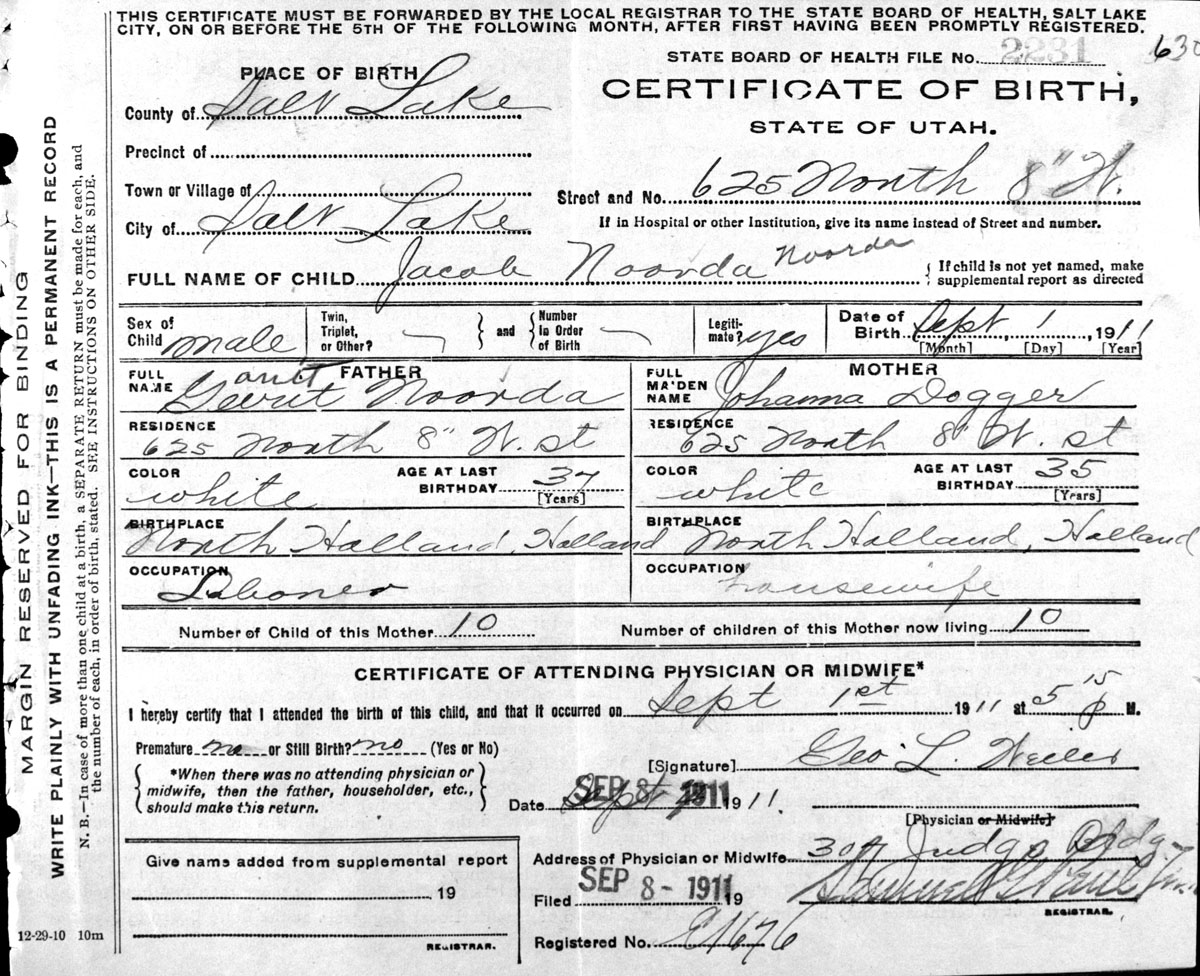 THIS CERTIFICATE MUST BE FORWARDED BY THE LOCAL REGISTRAR TO THE STATE BOARD OF HEALTH, SALT LAKE
CITY, ON OR BEFORE THE 5TH OF THE FOLLOWING MONTH, AFTER FIRST HAVING BEEN PROMPTLY REGISTERED.
STATE BOARD OF HEALTH FILE No. 2231 630
PLACE OF BIRTH
CERTIFICATE OF BIRTH,
County of Salt Lake
STATE OF UTAH.
Precinct of
Town or Village of
Street and No. 625 North 8" W.
City of Salt Lake
If in Hospital or other Institution, give its name instead of Street and number.
FULL NAME OF CHILD Jacob Noorda Noorda
{ If child is not yet named, make
supplemental report as directed
Sex of Child male
Twin, Triplet, or Other? } and { Number in Order of Birth
Legiti-mate? yes
Date of Birth Sept 1, 1911
[Month] [Day] [Year]
FATHER
FULL NAME Gerrit Noorda
RESIDENCE
625 North 8" W. st
COLOR white
AGE AT LAST BIRTHDAY 37
[Years]
BIRTHPLACE
North Holland, Holland
OCCUPATION
Laborer
MOTHER
FULL MAIDEN NAME Johanna Dogger
RESIDENCE
625 North 8" W. st
COLOR white
AGE AT LAST BIRTHDAY 35
[Years]
BIRTHPLACE
North Holland, Holland
OCCUPATION
housewife
Number of Child of this Mother 10
Number of children of this Mother now living 10
CERTIFICATE OF ATTENDING PHYSICIAN OR MIDWIFE*
I hereby certify that I attended the birth of this child, and that it occurred on Sept 1st 1911 at 5 15 P M.
Premature no or Still Birth? no (Yes or No)
{ *When there was no attending physician or
midwife, then the father, householder, etc.,
should make this return. }
[Signature] Geo. L.
Date SEP 8 1911 1911
[Physician or Midwife]
Give name added from supplemental report
19
REGISTRAR.
Address of Physician or Midwife Judge Bldg.
Filed SEP 8 - 1911 19
REGISTRAR.
Registered No.
12-29-10 10m
MARGIN RESERVED FOR BINDING
WRITE PLAINLY WITH UNFADING INK—THIS IS A PERMANENT RECORD
N. B.—In case of more than one child at a birth, a SEPARATE RETURN must be made for each, and
the number of each, in order of birth, stated. SEE INSTRUCTIONS ON OTHER SIDE.